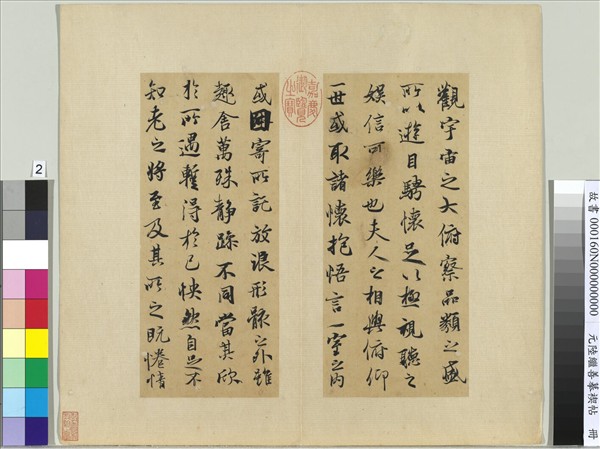 觀宇宙之大俯察品類之盛
所以遊目騁懷足以極視聽之
娛信可樂也夫人之相與俯仰
一世或取諸懷抱悟言一室之內
嘉慶御覽之寶
或因寄所託放浪形骸之外雖
趣舍萬殊靜躁不同當其欣
於所遇暫得於己怏然自足不
知老之將至及其所之既惓情
2
故書 000160N000000000 元陸繼善摹禊帖 冊